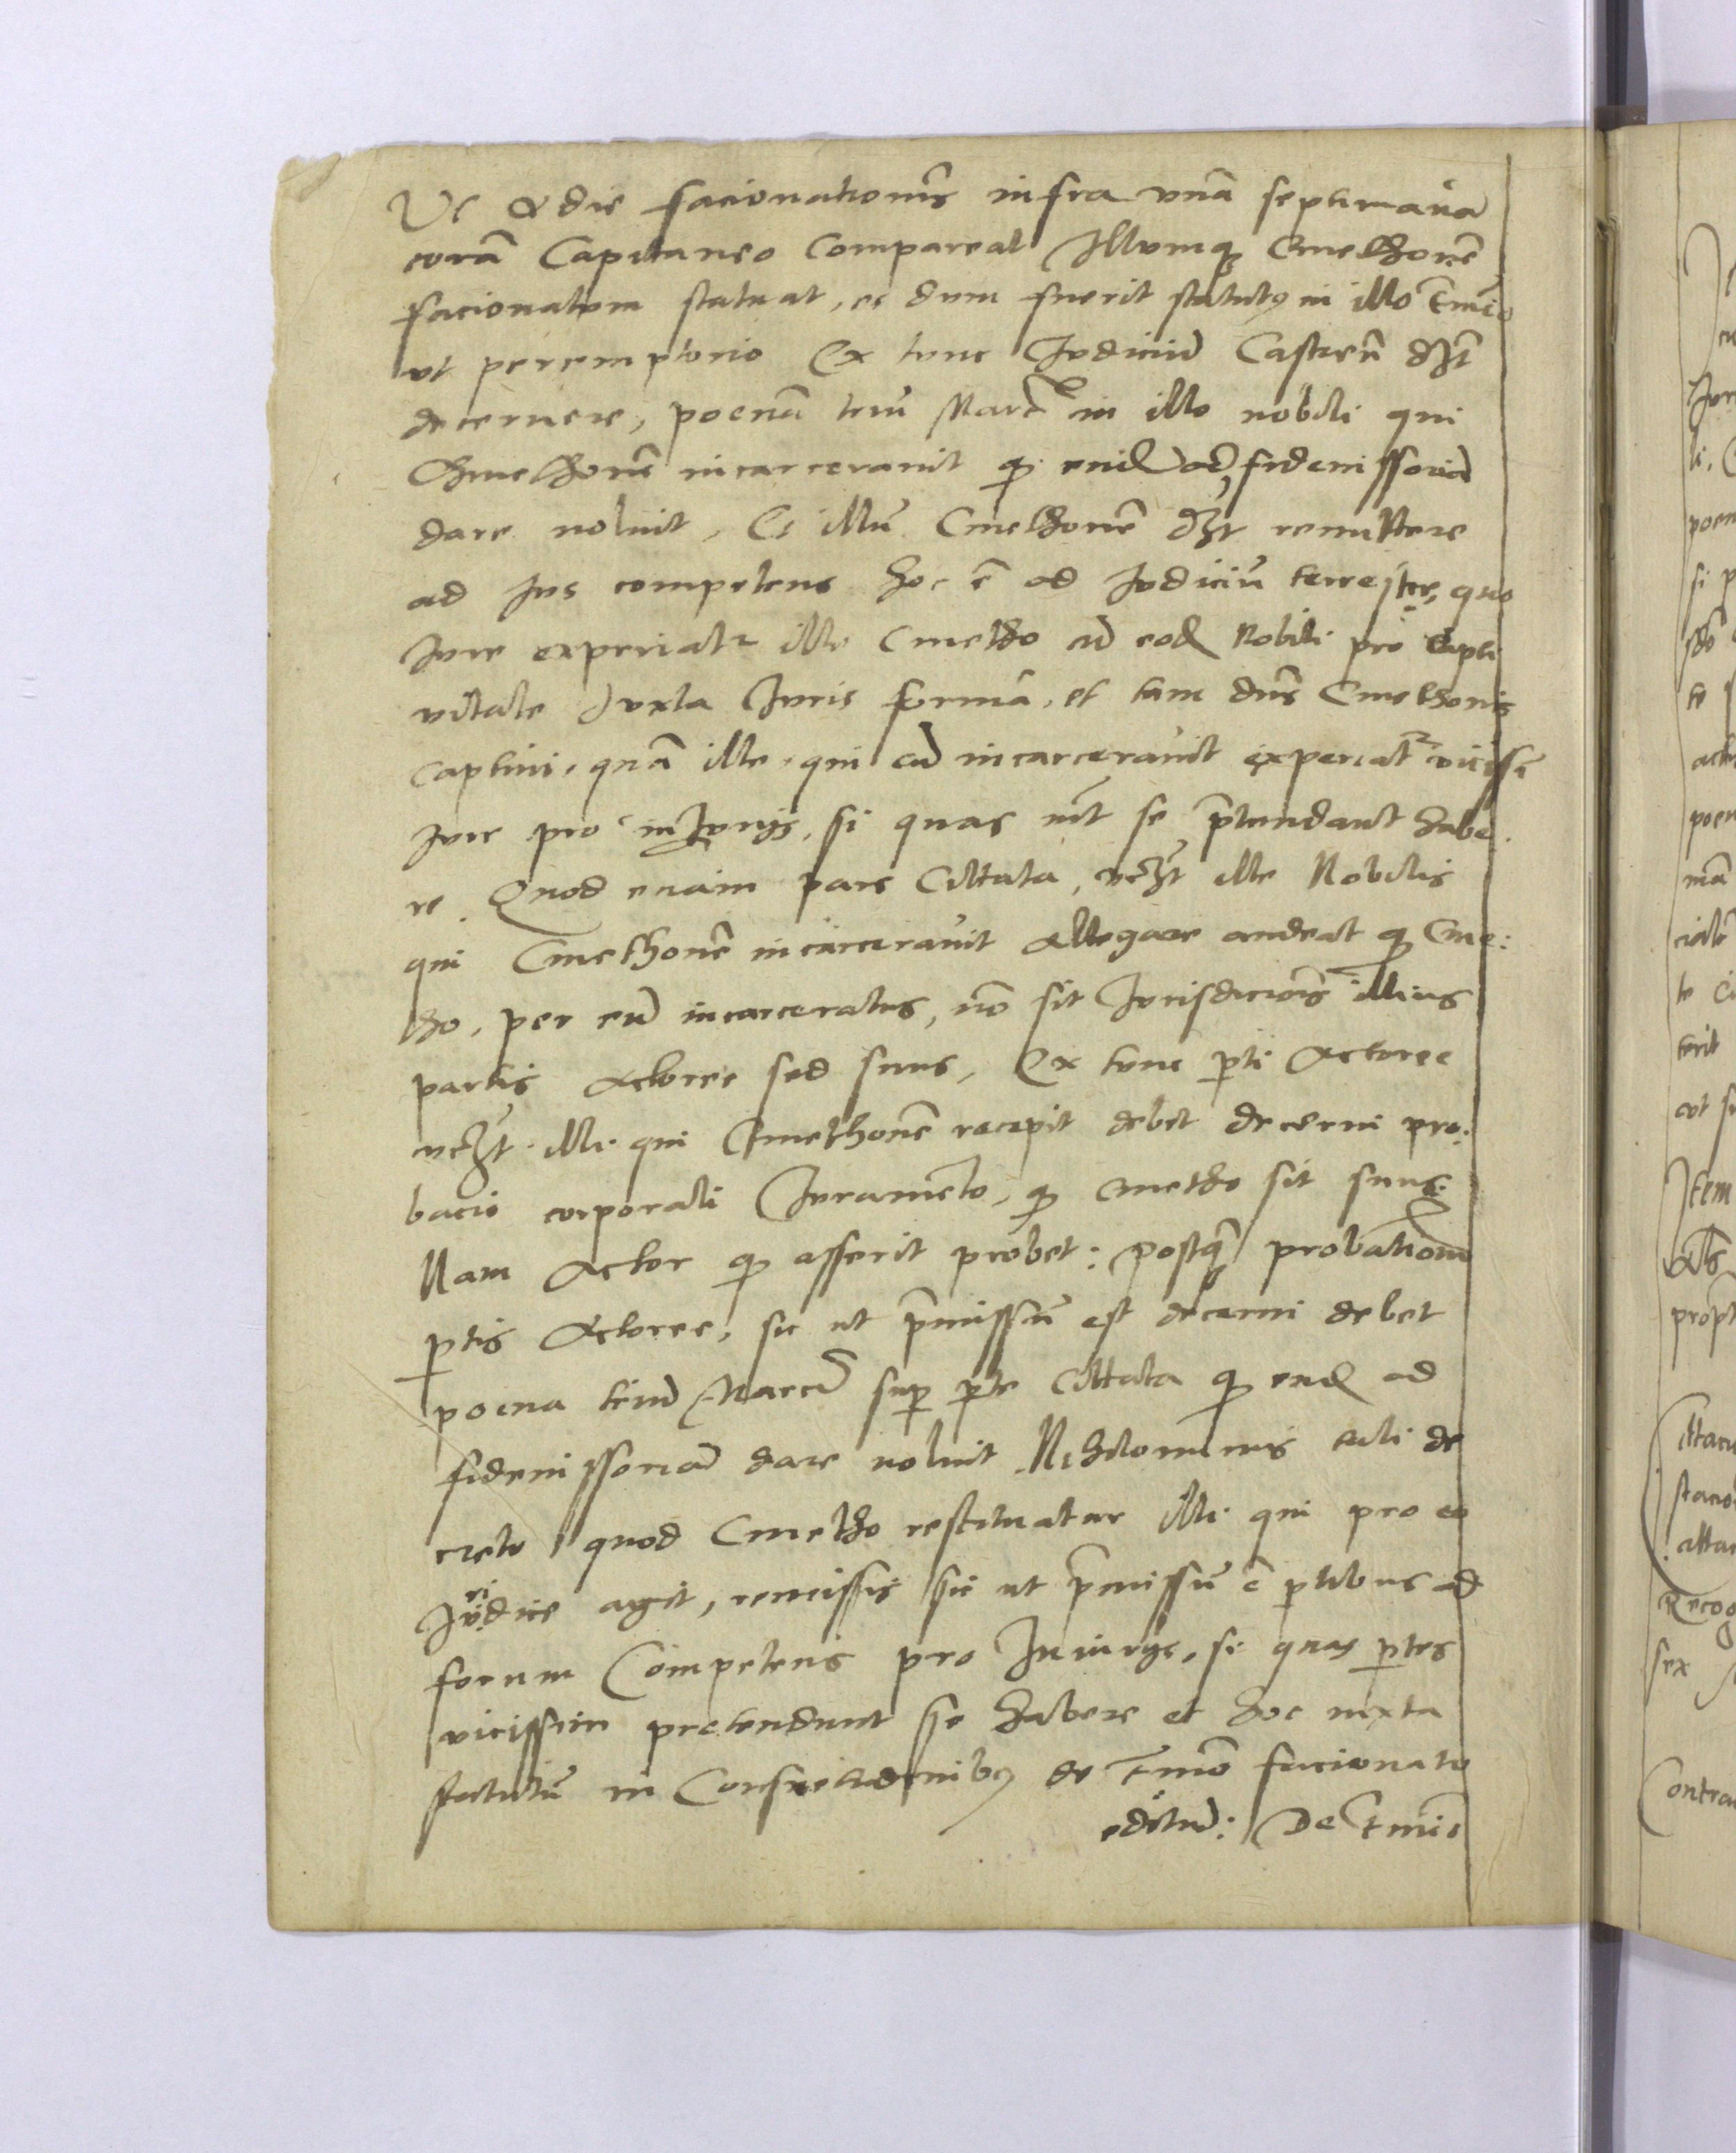 Vt a die facionationis infra vnã septimanã
corã Capitaneo compareat Illumq3 Cmethonẽ
facionatum statuat, et dum fuerit statutꝰ in illo Tmĩo
vt peremptorio Ex tunc Judiciũ Castreñ dz̃t
decernere, poenã triũ Marc̃ in illo nobili qui
Cmethonẽ incarceravit q3 eund̃ ad fideiussoriã
dare noluit, Et illũ Cmethonẽ dz̃t remittere
ad Jus competens hoc ẽ ad Judiciũ terrestre, quo
Jure experiatr ille Cmetho cũ eod̃ Nobili pro capti
vitate Juxta Juris formã, et tam dñs Cmethonis
captivi, quã ille, qui eũ incarceravit experiatr vicissĩ
Jure pro inIurijs, si quas int̃ se p̃tendant habe
re. Quod enaim pars Cittata, vcz̃t ille Nobilis
qui Cmethonẽ incarceravit allegare audeat q3 Cme:
tho, per eũ incarceratus, nõ sit Jurisdictiois̃ illius
partis actoree sed suus, Ex tunc p̃ti actoree
vcz̃t illi qui Cmethonẽ recepit debet decerni pro:
bacio corporali Juramẽto, q3 Cmetho sit suus:
Nam actor q3 asserit probet: postq̃ probationẽ
ptis Actoree, sic ut p̃missũ est decerni debet
poena triũ Marcẽ sup p̃te Cittata q3 eund̃ ad
fideiussoriã dare noluit Nihilominus tali de
creto quod Cmetho restituatur illi qui pro eo
Juridice agit, remissis sic ut p̃missũ ẽ p̃tibus ad
forum Competens pro Iniurijs, si quas p̃tes
vicissim pretendunt se habere et hoc iuxta
statutũ in Consuetudinibꝰ de Tmĩo facionato
editũ: De Tmĩs